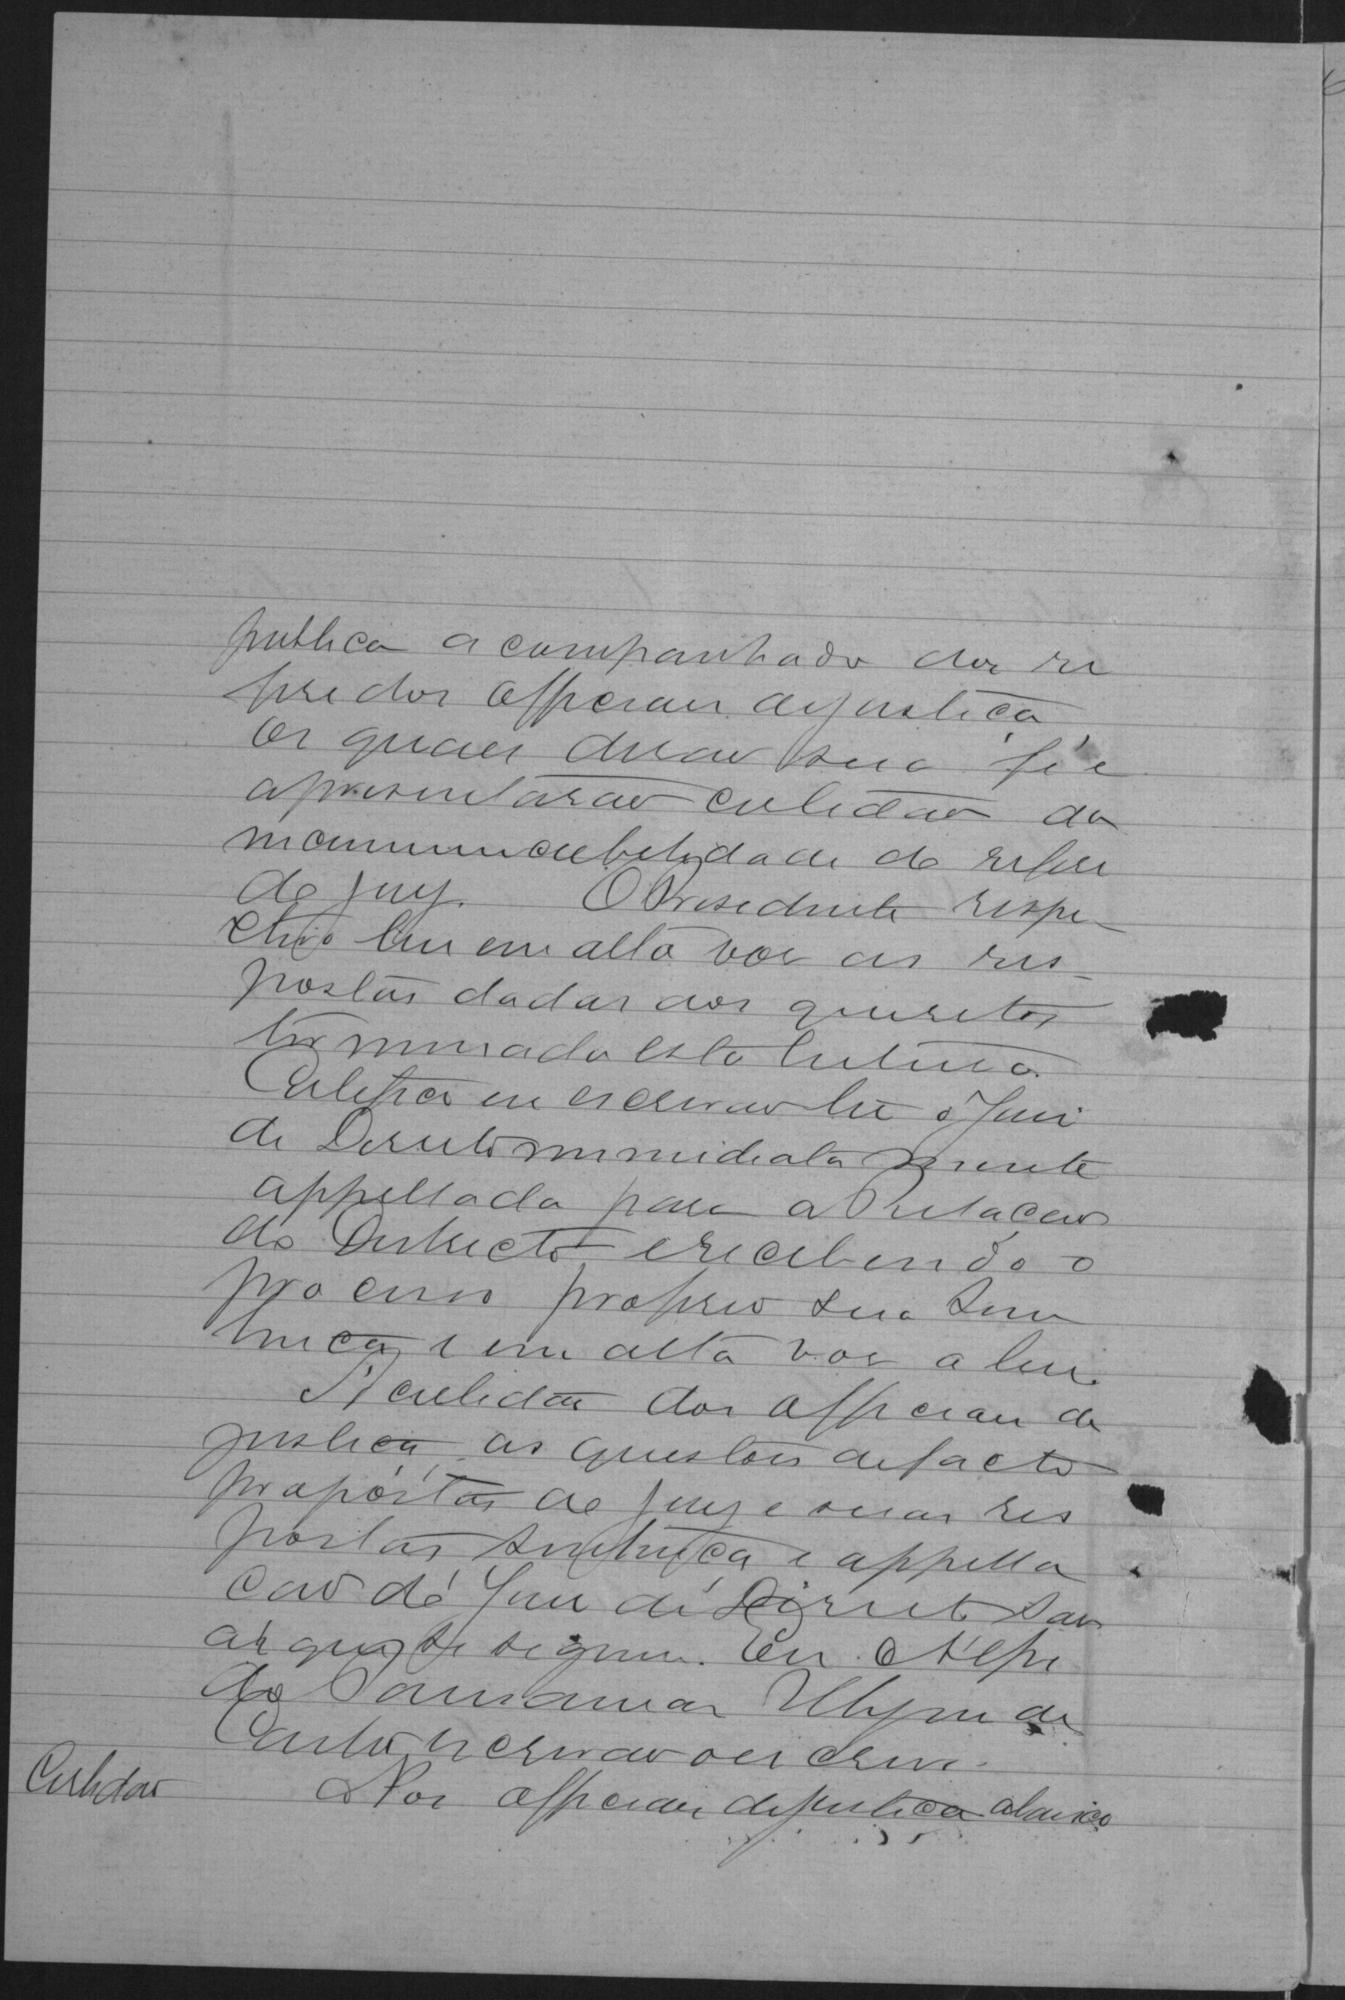 publica acompanhado dos re
feridos officiaes de justiça
os quaes derão sua fé e
apresentarão certidão da
incommunicabilidade do refer
do jury. O Presidente respe-
ctivo leu em alta voz as res-
postas dadas aos quesitos
terminada esta leitura
Certifico eu escrivão ter o Juiz
de Direito immediatamente
appellado para a Relação
do Districto e recebendo o
processo proferio sua sen
tença e em alta voz a leu.
A certidão dos officiaes de
justiça, as questões de facto
propóstas ao jury e suas res
postas sentença e appella
ção do Juiz de Direito são
as que se seguem. Eu
de
Couto escrivão o escrevi.
Certidão
Nos officiaes de justiça abaixo